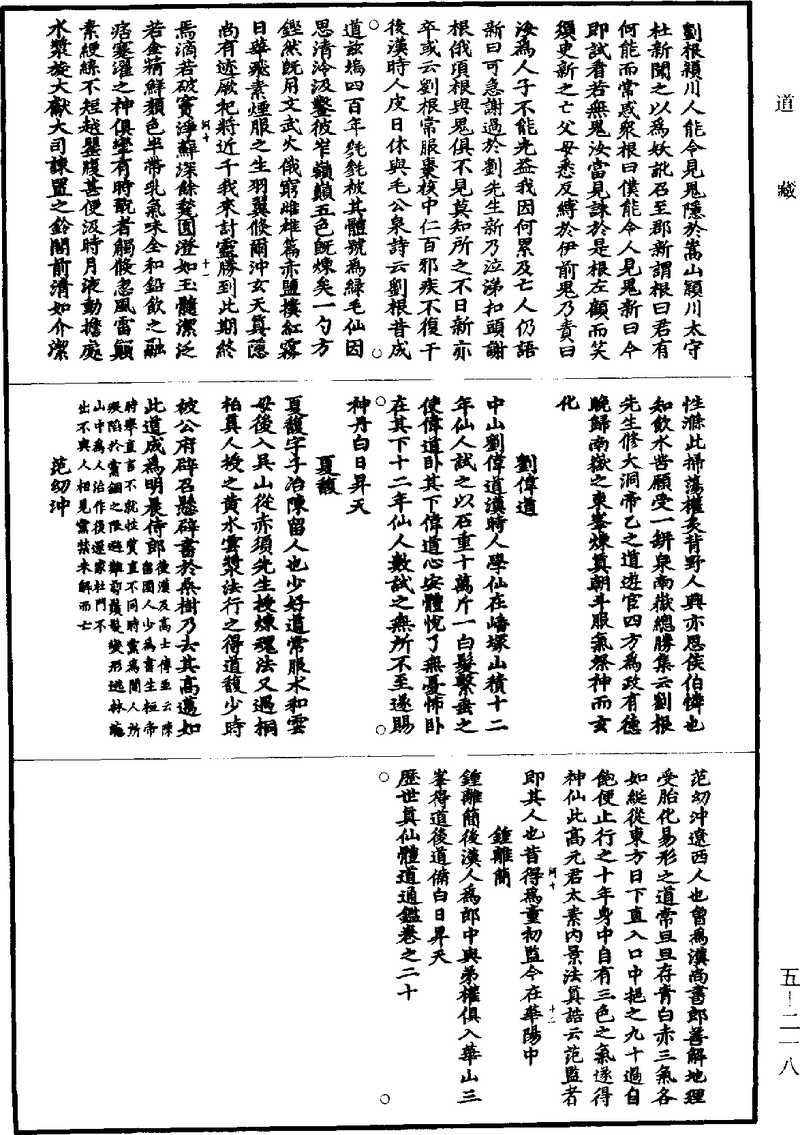 道藏
劉根潁川人能令見鬼隱於嵩山潁川太守
杜新聞之以為妖訛召至郡新謂根曰君有
何能而常惑衆根曰僕能令人見鬼新曰今
即試看若無鬼汝當見誅於是根左顧而笑
須史新之亡父母悉反縛於伊前鬼乃責曰
汝為人子不能光益我因何累及亡人仍語
新曰可急謝過於劉先生新乃泣涕扣頭謝
根俄頃根與鬼俱不見莫知所之不日新亦
卒或云劉根常服棗核中仁百邪疾不復干
後漢時人皮日休與毛公泉詩云劉根昔成
道兹塢四百年毿毿被其體號為綠毛仙因
思清泠汲鑿彼岝巔巔五色既煉矣一勺方
鏗然既用文武火俄窮雌雄篇赤鹽撲紅霧
日華飛素煙服之生羽翼倏爾沖玄天真隱
尚有迹厥祀將近千我來討靈勝到此期終
焉滴若破竇淨蘚深餘甃圓澄如玉髓潔泛
若金精鮮顏色半帶乳氣味全和鉛飲之融
痞蹇濯之伸俱攣有時翫者觸倏忽風雷顛
素綆絲不短越罌腹甚便汲時月液動擔處
水漿旋大獻大司諫置之鈴閣前清如介潔
性滌此掃蕩權炙背野人興亦思侯伯憐也
知飲水苦願受一缾泉南嶽總勝集云劉根
先生修大洞帝乙之道遊宦四方為政有德
晚歸南嶽之東峯煉真朝斗服氣祭神而玄
化
劉偉道
中山劉偉道漢時人學仙在嶓塚山積十二
年仙人試之以石重十萬斤一白髮繫垂之
使偉道卧其下偉道心安體悅了無憂怖卧
在其下十二年仙人數試之無所不至遂賜
神丹白日昇天
夏馥
夏馥字子冶陳留人也少好道常服术和雲
母後入吳山從赤須先生授煉魂法又遇桐
柏真人授之黄水雲漿法行之得道馥少時
被公府辟召懸辟書於桑樹乃去其高邁如
此道成為明晨侍郎後漢及高士傳並云陳
留圉人少為書生桓帝
時舉直言不就性質直不同時黨為閹人所
疾陷於黨錮之限避難剪鬚髮變形逃林慮
山中為人治作後還家杜門不
出不與人相見黨禁未解而亡
范幼冲
范幼冲遼西人也曾為漢尚書郎善解地理
受胎化易形之道常旦旦存青白赤三氣各
如綖從東方日下直入口中挹之九十過自
飽便止行之十年身中自有三色之氣遂得
神仙此高元君太素內景法真誥云范監者
即其人也昔得為童初監今在華陽中
鍾離簡
鍾離簡後漢人為郎中與弟權俱入華山三
峯得道後道備白日昇天
歷世真仙體道通鑑卷之二十
五-二一八